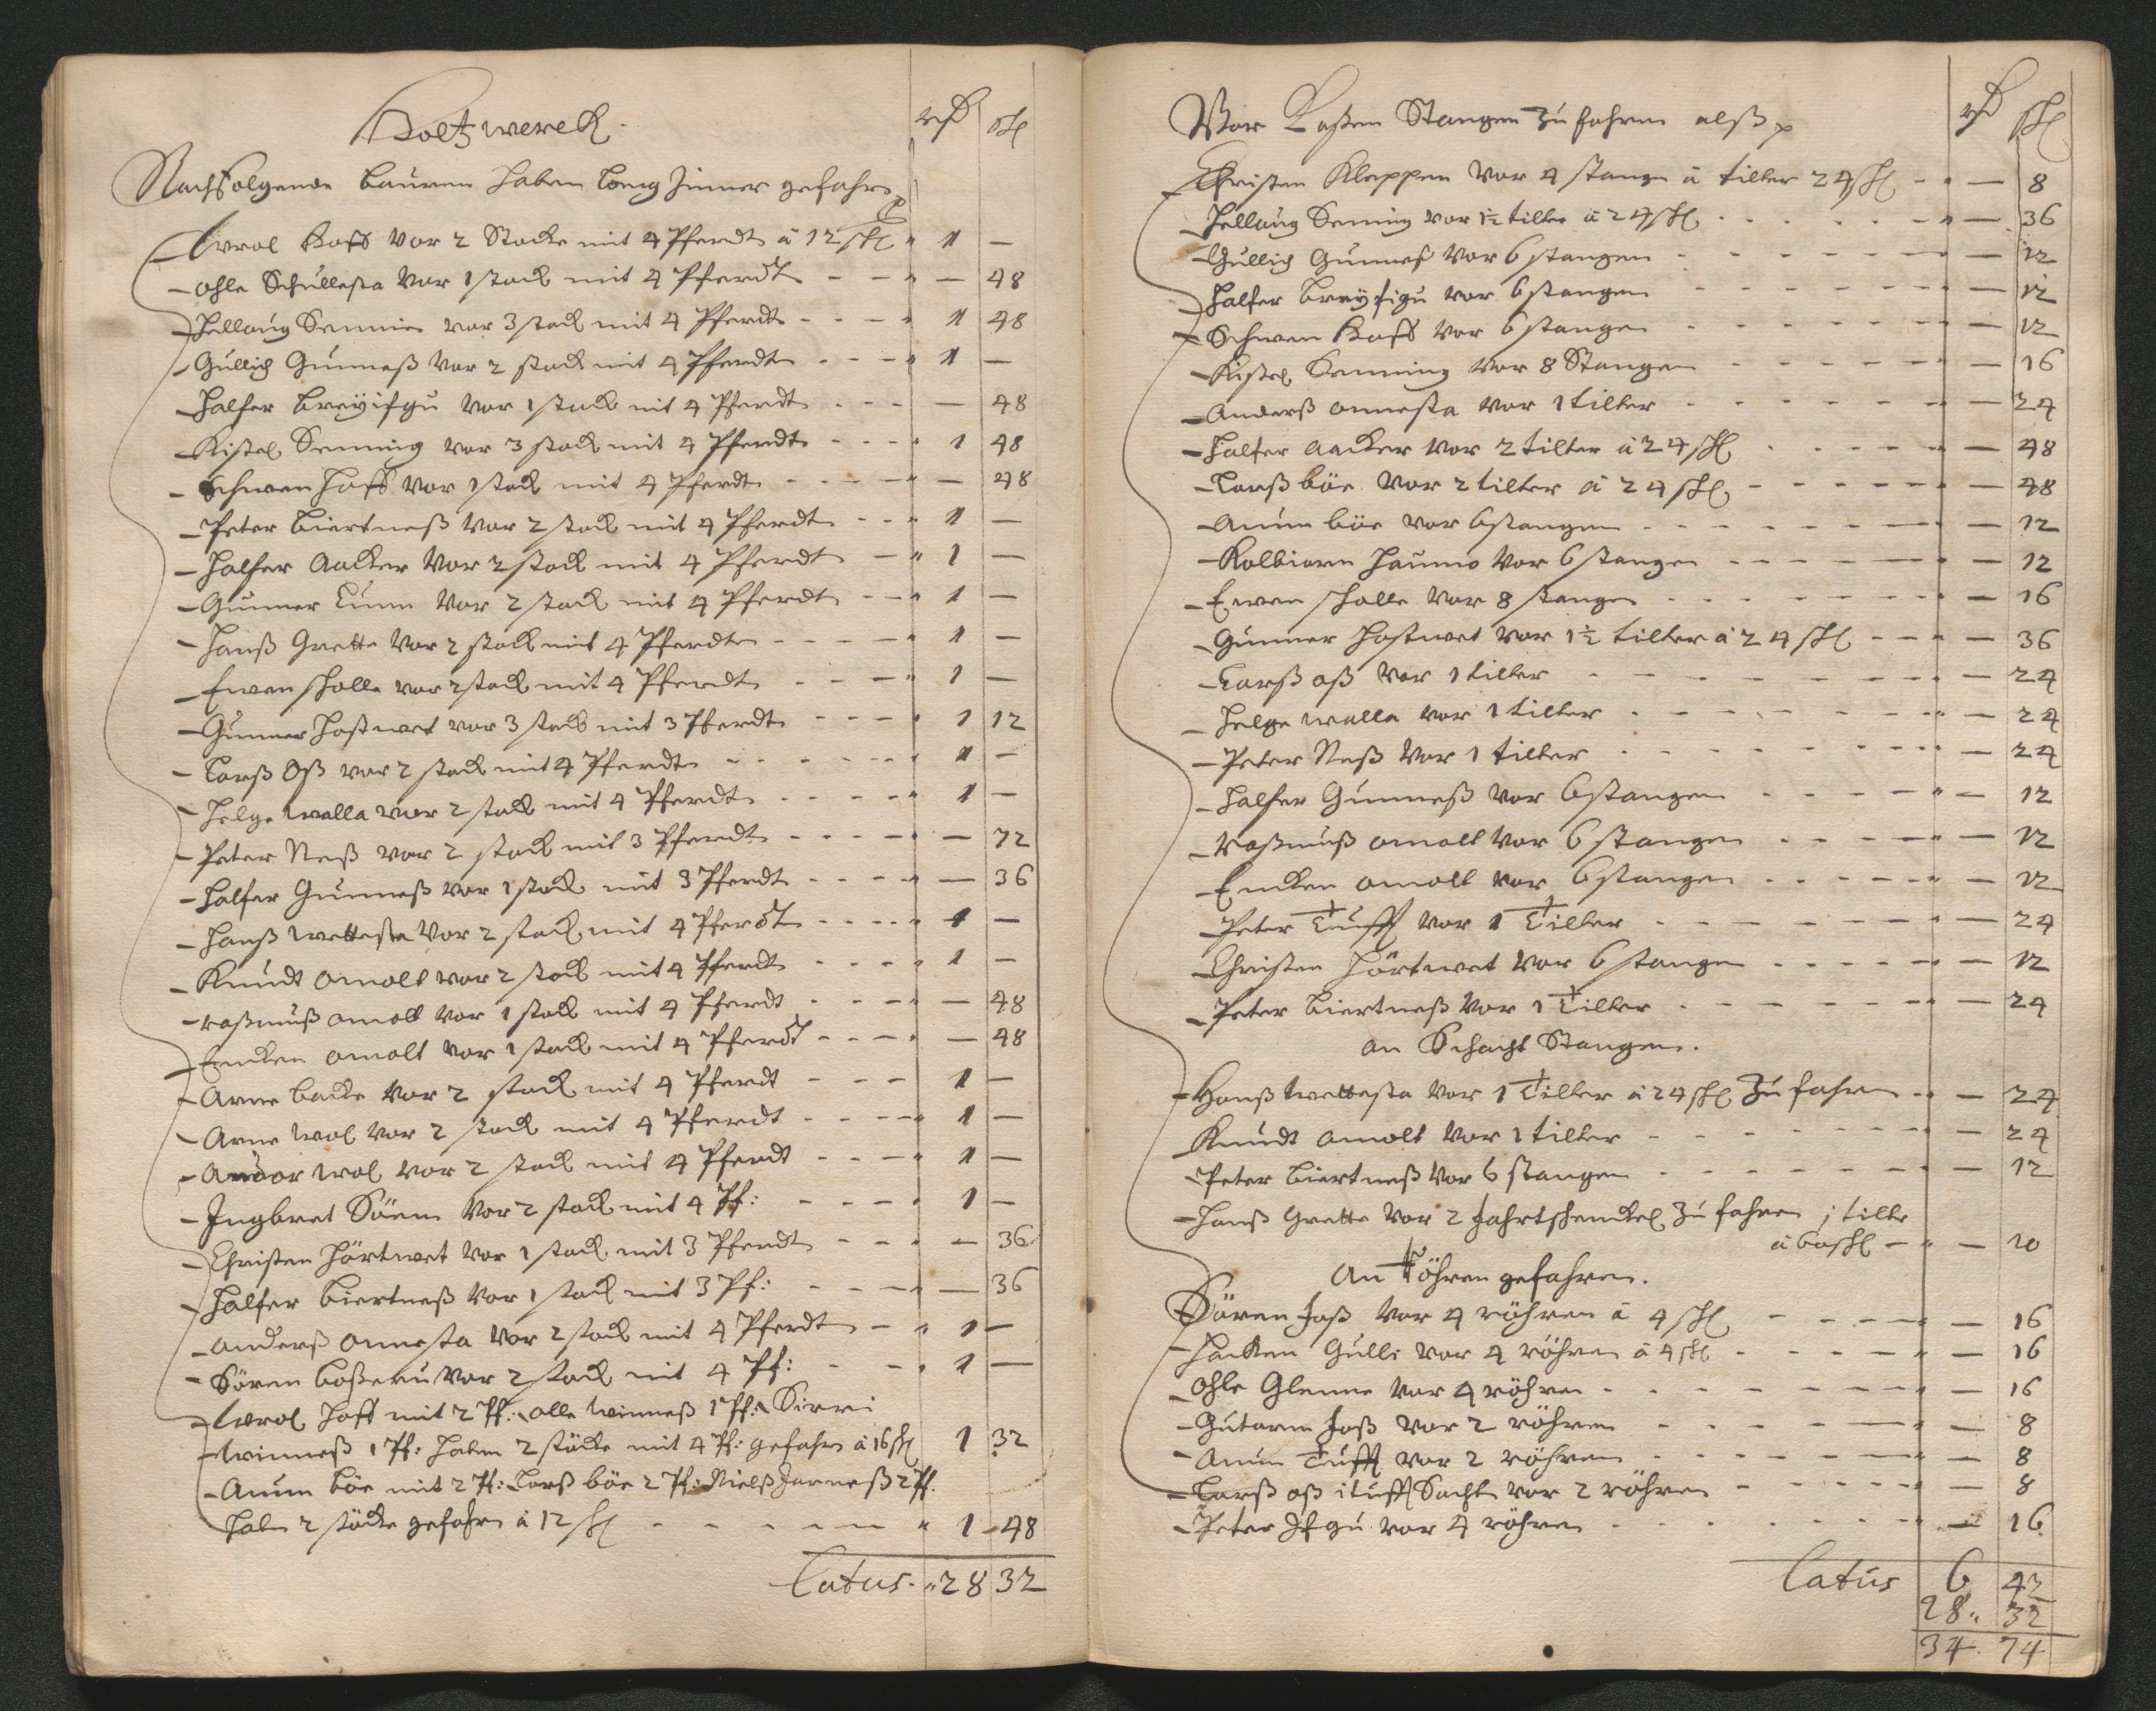 Holtzwerck.
rß ſßl
Nachfolgende Bauren haben lang Zimer gefahrn
Wrol Hoff vor 2 Stocke mit 4 Pferdt â 12 ſßl 1 —
Ohle Schullesta vor 1 stock mit 4 Pferdt — 48
Hellaug Semmin vor 3 stock mit 4 Pferdt 1 48
Gullich Gunneß vor 2 stock mit 4 Pferdt 1 —
Halfer vor 1 stock mit 4 Pferdt — 48
Kistel Semming vor 3 stock mit 4 Pferdt 1 48
Schwen Hoff vor 1 stock mit 4 Pferdt — 48
Peter Biertneß vor 2 stock mit 4 Pferdt 1 —
Halfer Aacker vor 2 stock mit 4 Pferdt 1 —
Gunner Lunn vor 2 stock mit 4 Pferdt 1 —
Hanß Grette vor 2 stock mit 4 Pferdt 1 —
Ewen Holle vor 2 stock mit 4 Pferdt 1 —
Gunner Hostwet vor 3 stock mit 3 Pferdt 1 12
Larß Oß vor 2 stock mit 4 Pferdt 1 —
Helge Walla vor 2 stock mit 4 Pferdt 1 —
Peter Neß vor 2 stock mit 3 Pferdt — 72
Halfer Gunneß vor 1 stock mit 3 Pferdt — 36
Hanß Wettesta vor 2 stock mit 4 Pferdt 1 —
Knudt Omolt vor 2 stock mit 4 Pferdt 1 —
Raßmuß Omolt vor 1 stock mit 4 Pferdt — 48
Encken Omolt vor 1 stock mit 4 Pferdt — 48
Arne Backe vor 2 stock mit 4 Pferdt 1 —
Arne Wol vor 2 stock mit 4 Pferdt 1 —
Andor Wol vor 2 stock mit 4 Pferdt 1 —
Ingbret Söem vor 2 stock mit 4 Pf: 1 —
Christen Hörtwet vor 1 stock mit 3 Pferdt — 36
Halfer Biertneß vor 1 stock mit 3 Pf: — 36
Anderß Onnesta vor 2 stock mit 4 Pferdt 1 —
Sören vor 2 stock mit 4 Pf: 1 —
Wrol Hoff mit 2 Pf: Olle Winneß 1 Pf: Sirri
Winneß 1 Pf: haben 2 stöcke mit 4 Pf: gefahrn â 16 ſßl 1 32
Anun Böe mit 2 Pf: Larß Böe 2 Pf: Nielß Jarneß 2 Pf.
habn 2 stöcke gefahrn â 12 ſßl 1 48
Latus 28 32
Vor Stangen zu fahren alß
rß ſßl
Christen Kleppen vor 4 stangen â tilter 24 ſßl — 8
Hellaug Semming vor 1½ tilter â 24 ſßl — 36
Gullich Gunneß vor 6 stangen — 12
Halfer vor 6 stangen — 12
Schwen Hoff vor 6 stangen — 12
Kistel Semming vor 8 Stangen — 16
Anderß Onnesta vor 1 tilter — 24
Halfer Aacker vor 2 tilter â 24 ſßl — 48
Larß Böe vor 2 tilter â 24 ſßl — 48
Anun Böe vor 6 stangen — 12
Kolbiorn Haumo vor 6 stangen — 12
Ewen Holle vor 8 stangen — 16
Gunner Hostwet vor 1½ tilter â 24 ſßl — 36
Larß Oß vor 1 tilter — 24
Helge Walla vor 1 tilter — 24
Peter Neß vor 1 tilter — 24
Halfer Gunneß vor 6 stangen — 12
Raßmuß Omolt vor 6 stangen — 12
Encken Omolt vor 6 stangen — 12
Peter Tufft vor 1 Tilter — 24
Christen Hörtwet vor 6 stangen — 12
Peter Biertneß vor 1 Tilter — 24
An Schacht Stangen.
Hanß Wettesta vor 1 Tilter â 24 ſßl zu fahren — 24
Knudt Omolt vor 1 tilter — 24
Peter Biertneß vor 6 stangen — 12
Hanß Grette vor 2 Fahrtschenckel zu fahren 1 tilter
â 60 ſßl — 10
An Röhren gefahren.
Sören Foß vor 4 röhren â 4 ſßl — 16
Hacken Gulli vor 4 röhren â 4 ſßl — 16
Ohle Glenne vor 4 röhren — 16
Gutorm Foß vor 2 röhren — 8
Anun Tufft vor 2 röhren — 8
Larß Oß vor 2 röhren — 8
Peter vor 4 röhren — 16
Latus 6 42
28 32
34 74